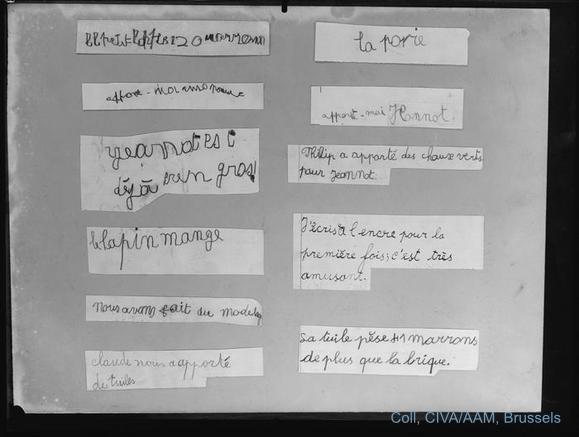 marron
apporte-moi
jeannot est
déjà gros
le lapin mange
nous avons fait du modelag
claude nous a apporté
des tuiles
la
apporte-moi Jeannot.
Philip a apporté des choux verts
pour Jeannot.
J'écris à l'encre pour la
première fois; c'est très
amusant.
La tuile pèse 41 marrons
de plus que la brique.
Coll, CIVA/AAM, Brussels